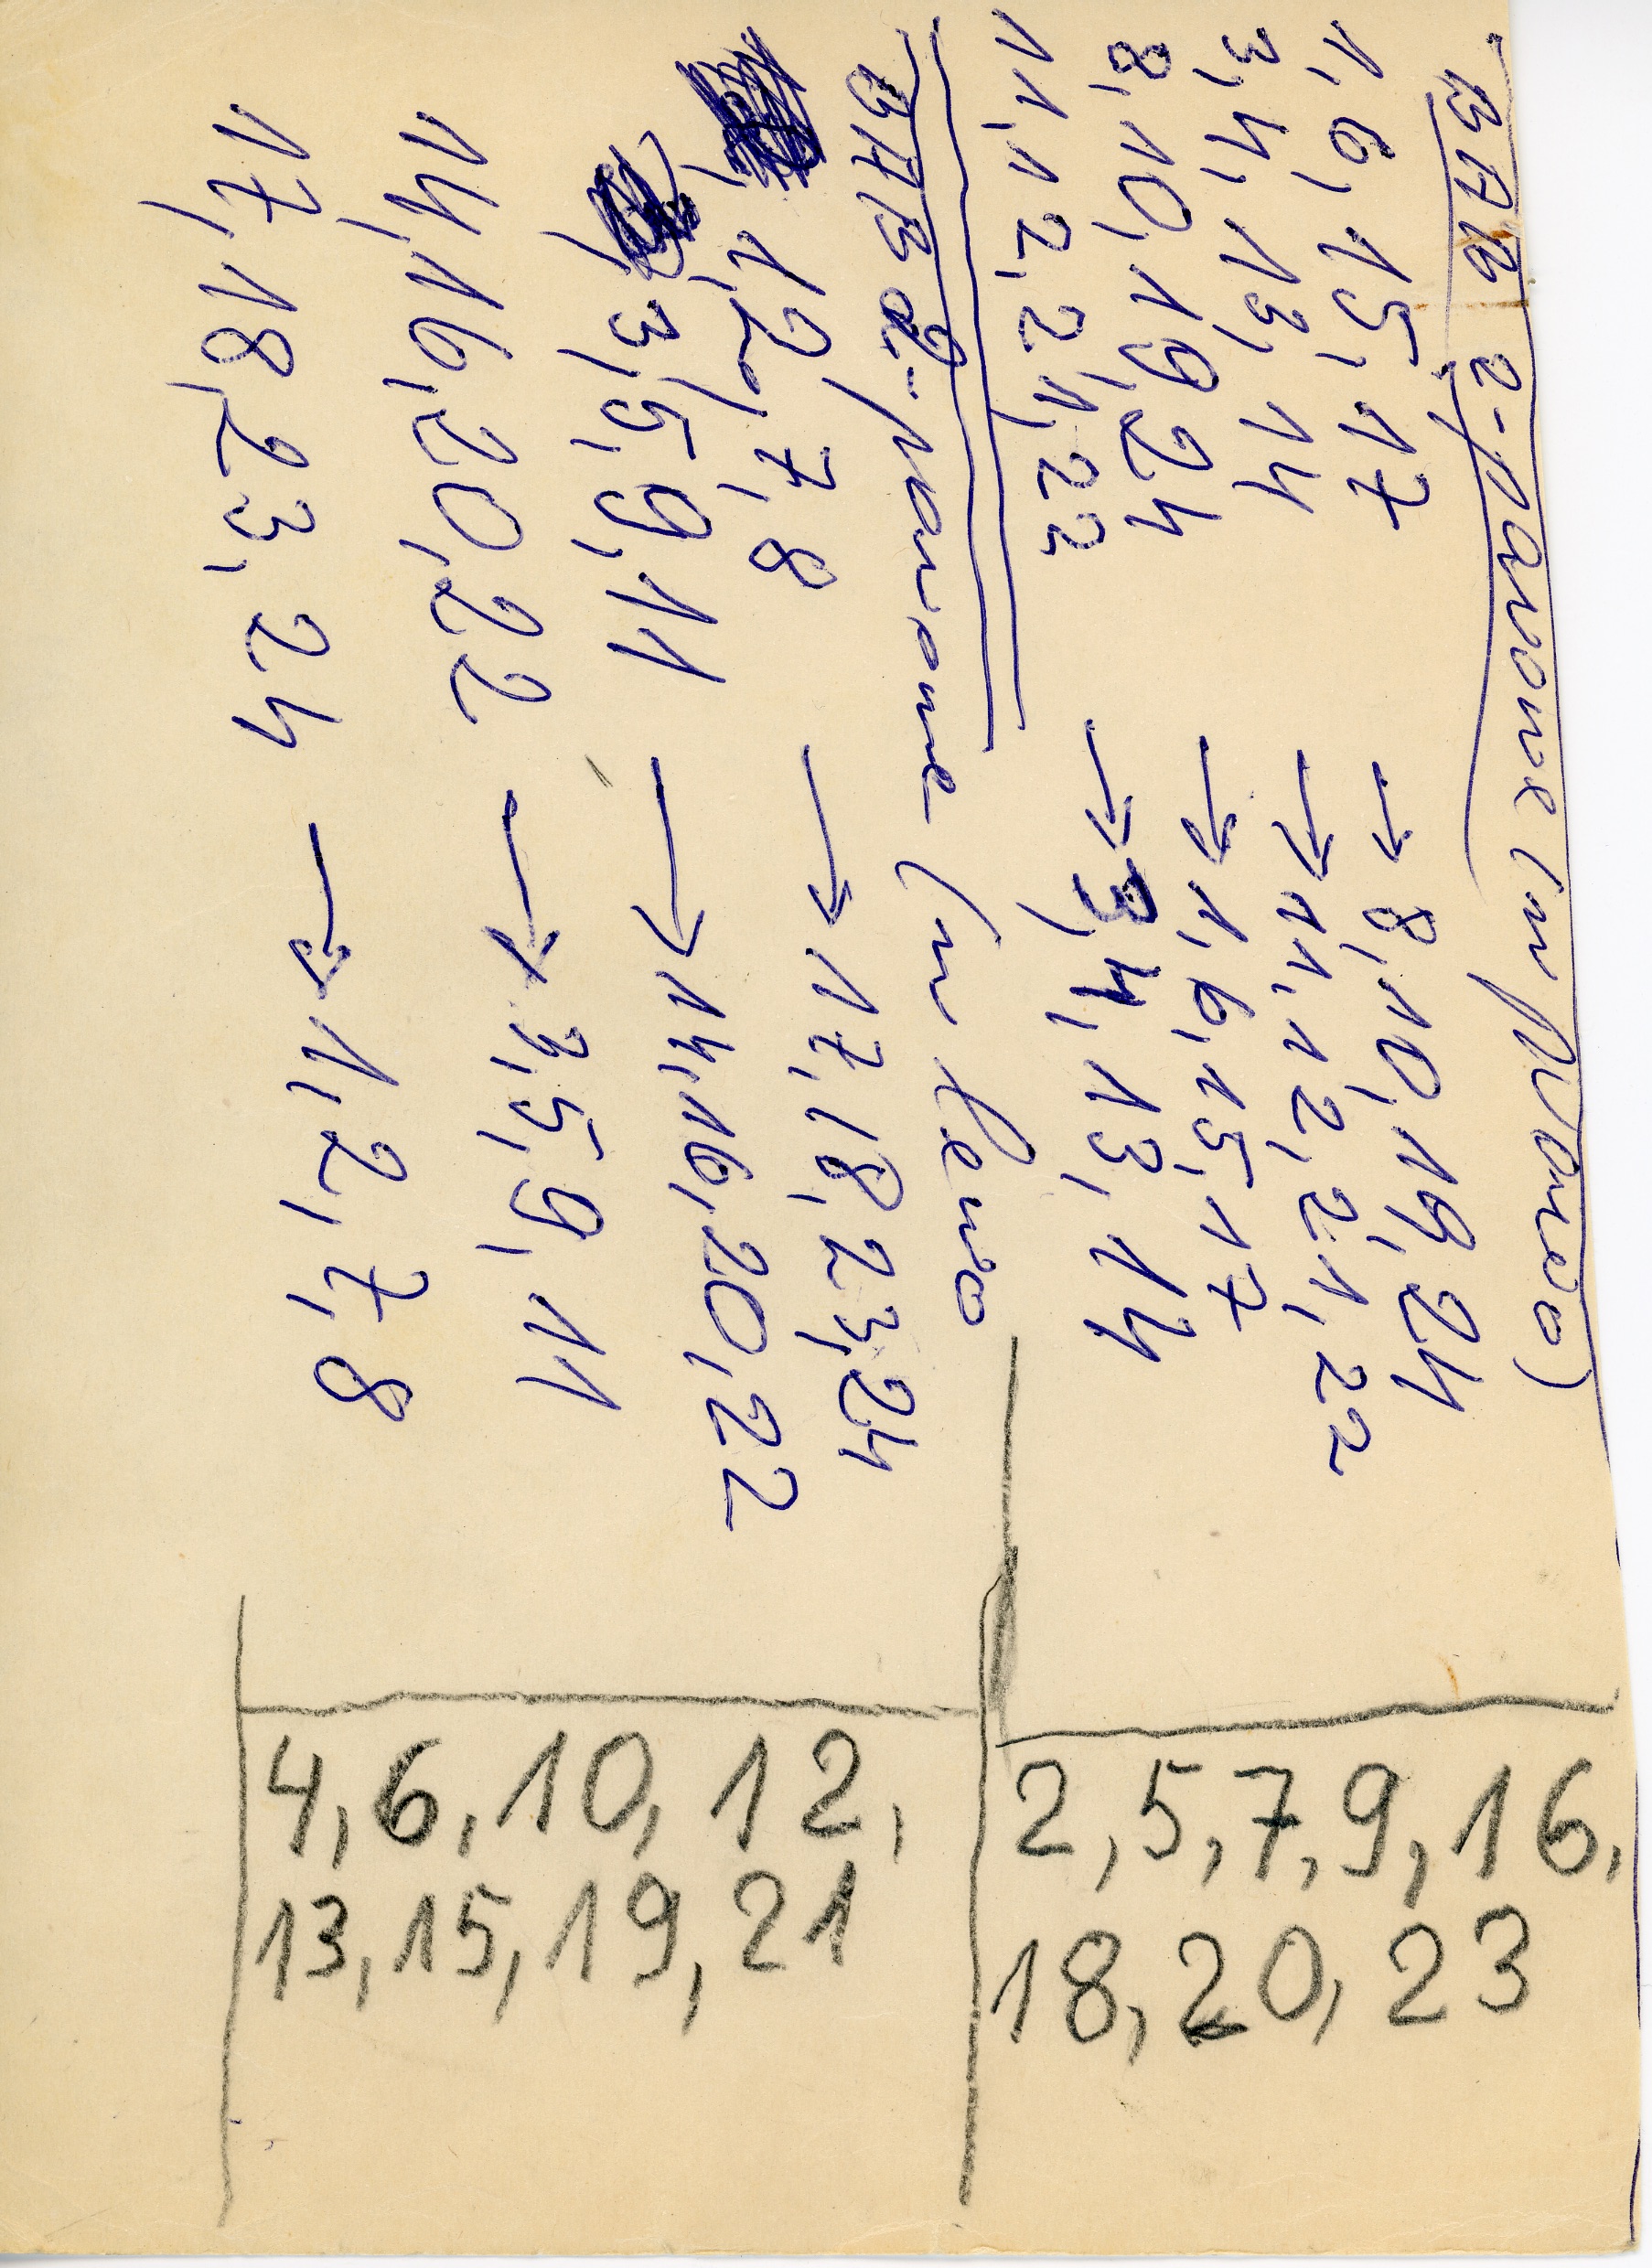 1, 6, 15, 17 → 8, 10, 19, 24
3, 4, 13, 14 → 11, 12, 21, 22
8, 10, 19, 24 → 1, 6, 15, 17
11, 12, 21, 22 → 3, 4, 13, 14
1, 2, 7, 8 → 17, 18, 23, 24
3, 5, 9, 11 → 14, 16, 20, 22
14, 16, 20, 22 → 3, 5, 9, 11
17, 18, 23, 24 → 1, 2, 7, 8
4, 6, 10, 12,
13, 15, 19, 21
2, 5, 7, 9, 16,
18, 20, 23